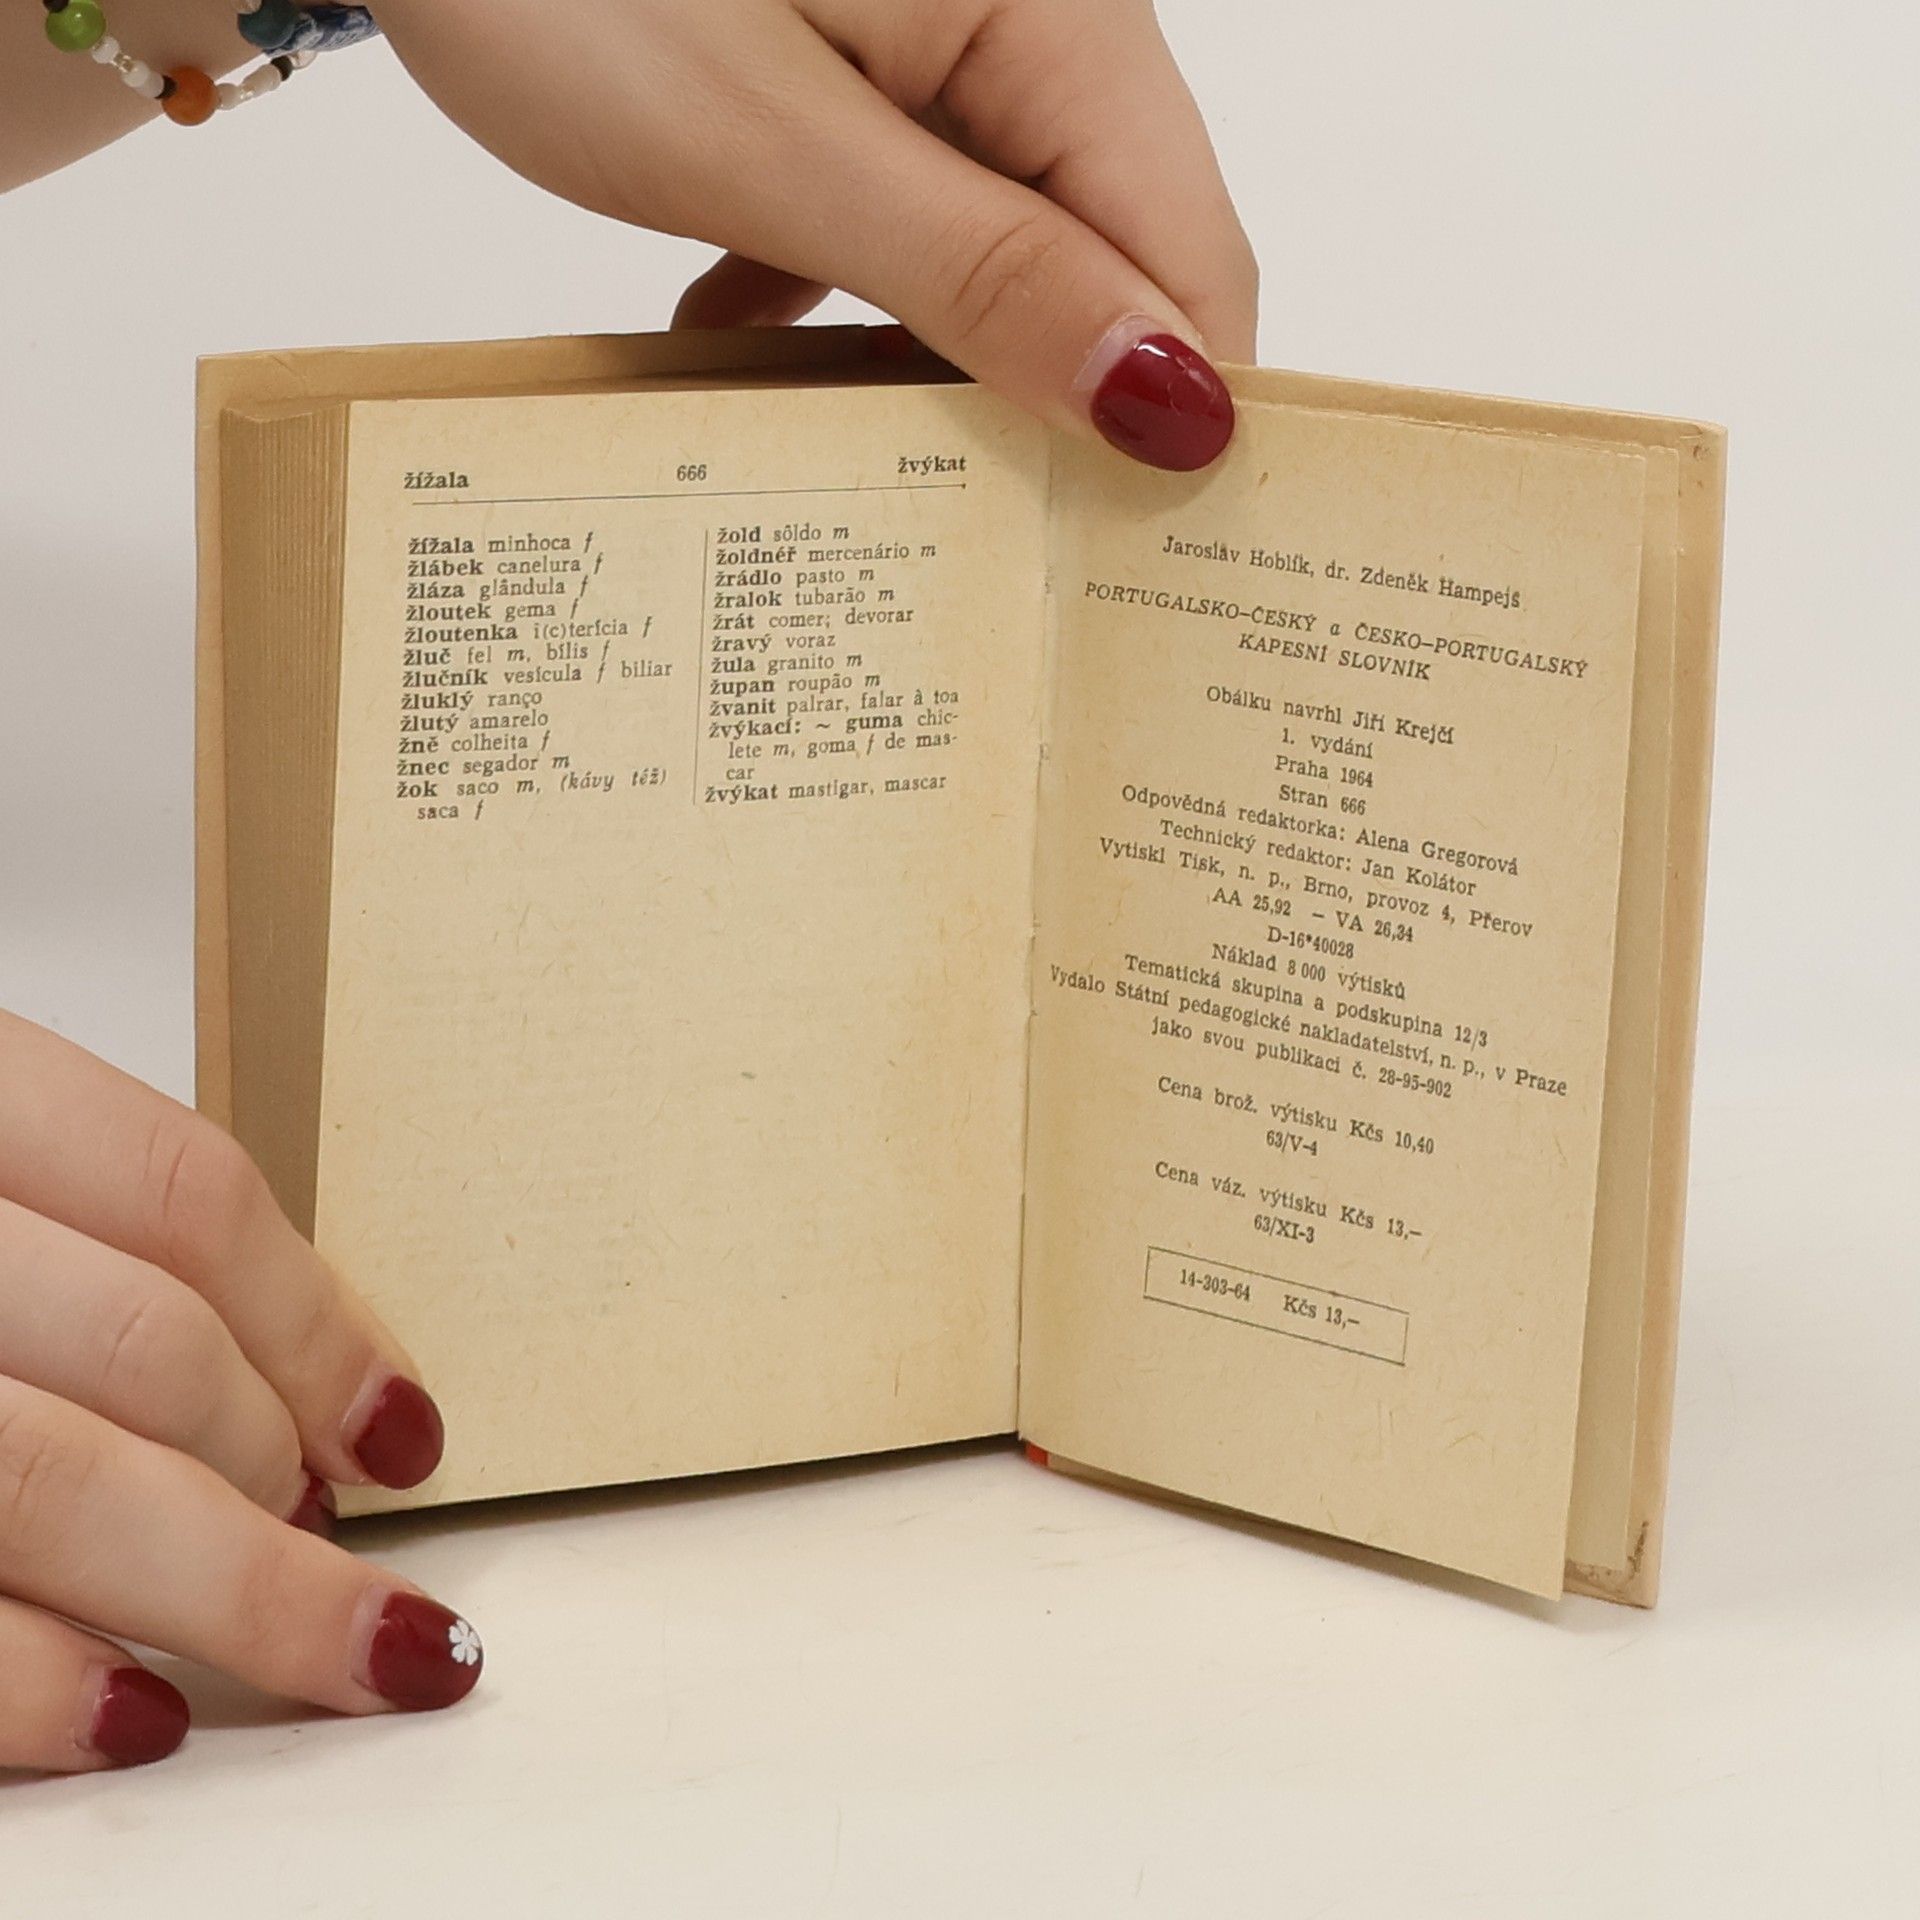 žížala 666 žvýkat
žížala minhoca f
žlábek canelura f
žláza glândula f
žloutek gema f
žloutenka i(c)terícia f
žluč fel m, bílis f
žlučník vesícula f biliar
žluklý ranço
žlutý amarelo
žně colheita f
žnec segador m
žok saco m, (kávy též)
saca f
žold sôldo m
žoldnéř mercenário m
žrádlo pasto m
žralok tubarão m
žrát comer; devorar
žravý voraz
žula granito m
župan roupão m
žvanit palrar, falar à toa
žvýkací: ~ guma chic-
lete m, goma f de mas-
car
žvýkat mastigar, mascar
Jaroslav Hoblík, dr. Zdeněk Hampejš
PORTUGALSKO–ČESKÝ a ČESKO–PORTUGALSKÝ
KAPESNÍ SLOVNÍK
Obálku navrhl Jiří Krejčí
1. vydání
Praha 1964
Stran 666
Odpovědná redaktorka: Alena Gregorová
Technický redaktor: Jan Kolátor
Vytiskl Tisk, n. p., Brno, provoz 4, Přerov
AA 25,92 – VA 26,34
D-16*40028
Náklad 8 000 výtisků
Tematická skupina a podskupina 12/3
Vydalo Státní pedagogické nakladatelství, n. p., v Praze
jako svou publikaci č. 28-95-902
Cena brož. výtisku Kčs 10,40
63/V-4
Cena váz. výtisku Kčs 13,–
63/XI-3
14-303-64 Kčs 13,–